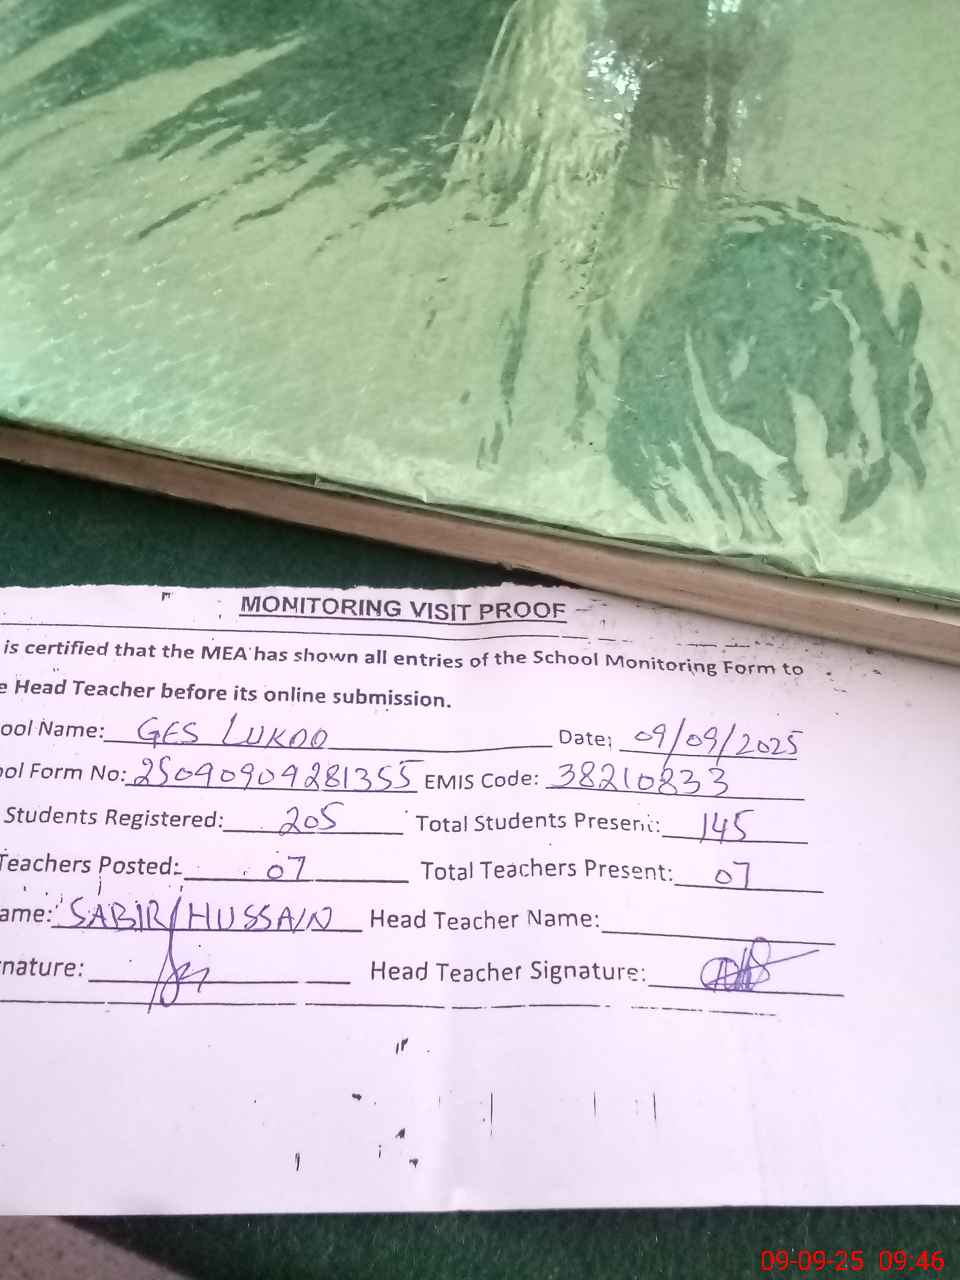 MONITORING VISIT PROOF
is certified that the MEA has shown all entries of the School Monitoring Form to
e Head Teacher before its online submission.
ool Name: GES LUKOO Date: 09/09/2025
ool Form No: 25090904281355 EMIS Code: 38210833
Students Registered: 205 Total Students Present: 145
Teachers Posted: 07 Total Teachers Present: 07
ame: SABIR HUSSAIN Head Teacher Name:
nature: Head Teacher Signature:
09-09-25 09:46